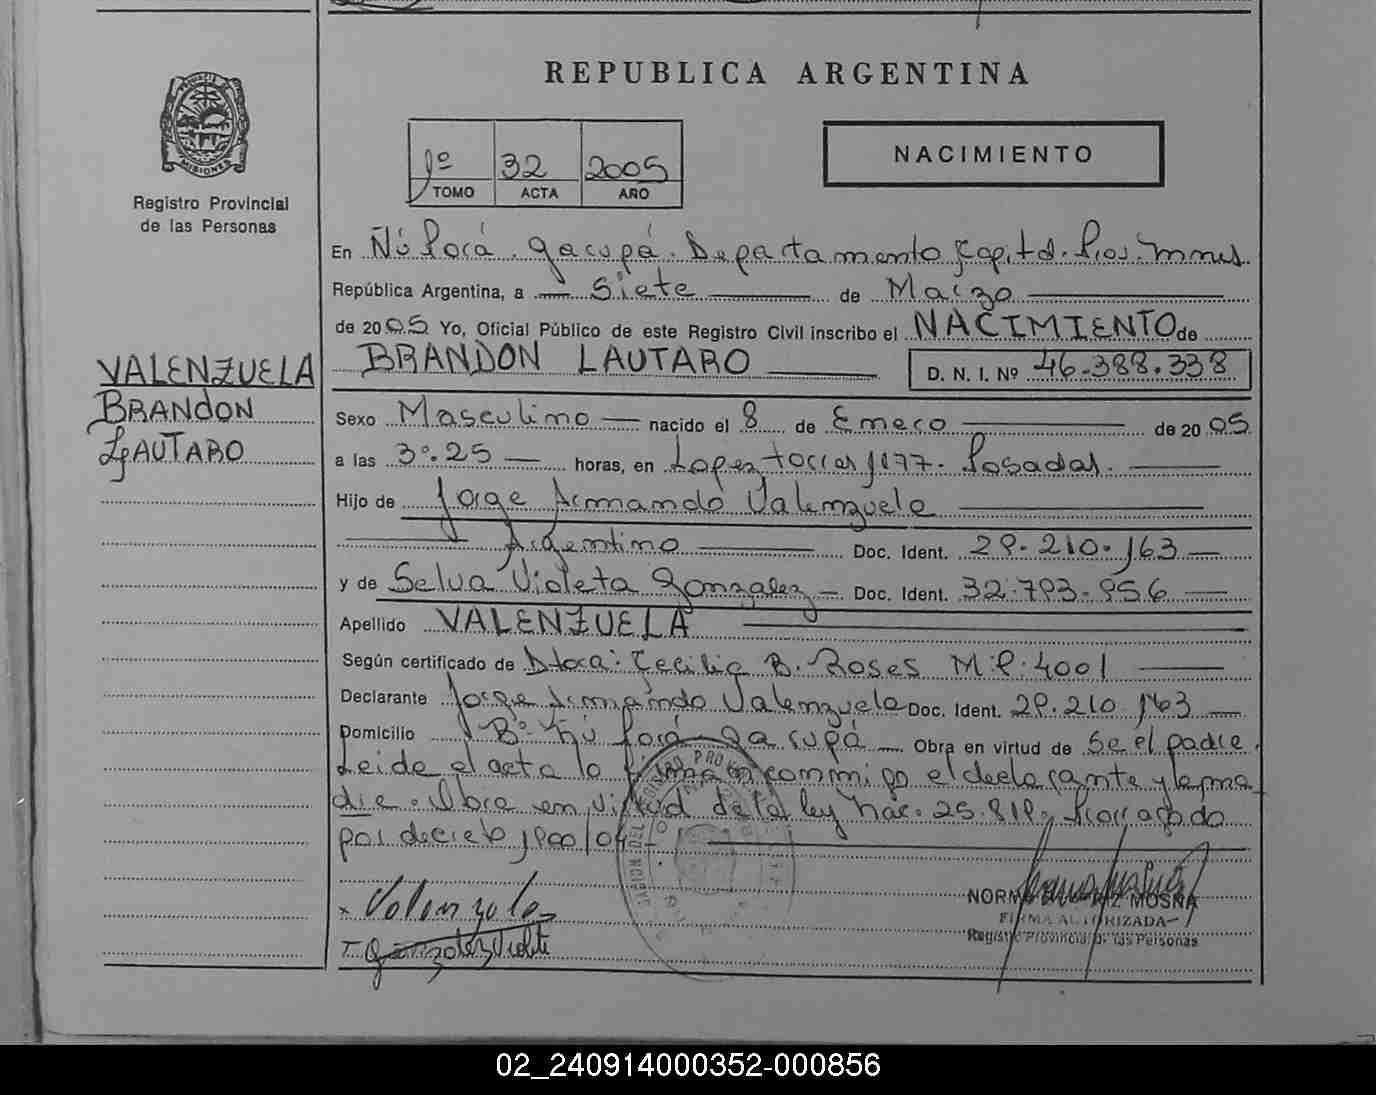 REPUBLICA ARGENTINA
MISIONES
Registro Provincial
de las Personas
1º 32 2005
TOMO ACTA AÑO
NACIMIENTO
En Ñú Porá. Garupá. Departamento Capital. Pcia. Mnes.
República Argentina, a siete de Marzo
de 2005 Yo, Oficial Público de este Registro Civil inscribo el NACIMIENTO de
BRANDON LAUTARO D. N. I. Nº 46.388.338
VALENZUELA
BRANDON
LAUTARO
Sexo Masculino nacido el 8 de Enero de 2005
a las 3º.25 horas, en Lopez torres 1177. Posadas.
Hijo de Jorge Armando Valenzuela
Argentino Doc. Ident. 29.210.163
y de Selva Violeta Gonzalez Doc. Ident. 32.793.956
Apellido VALENZUELA
Según certificado de Dtora: Cecilia B. Roses M.P. 4001
Declarante Jorge Armando Valenzuela Doc. Ident. 29.210.163
Domicilio Bº Ñú Porá Garupá Obra en virtud de Se el padre.
Leida el acta la firman conmigo el declarante y la ma
dre. Obra en virtud de la ley Nac. 25.819. Prorrogado
por decreto 1900/04
x Valenzuela
Gonzalez Violeta
NORMA MOSNA
FIRMA AUTORIZADA
Registro Provincial de las Personas
02_240914000352-000856